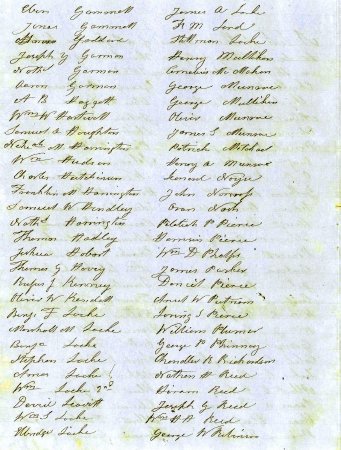 Eben Gammell
Jonas Gammell
James Goddard
Joseph G Garmon
Nathl Garmon
Aaron Garmon
A B Haggett
Wm W Hartwell
Samuel A Houghton
Nehemiah M Harrington
Wm Hudson
Charles Hutchinson
Franklin M Harrington
Samuel W Hendley
Nathl Harrington
Thomas Hadley
Joshua Hobart
Thomas G Hovey
Rufus J Kenney
Oliver W Kendall
Benj. F Locke
Marshall M Locke
Benja Locke
Stephen Locke
Amos Locke
Wm Locke 2nd
Daniel Leavitt
Wm S Locke
Elbridge Locke
James A Locke
F M Lord
Stillman Locke
Henry Mulliken
Cornelius McMahan
George Munroe
George Mulliken
Oliver Munroe
James S Munroe
Patrick Mitchell
Henry A Munroe
John
Oran Nash
P Pierce
Pierce
Wm D Phelps
James Parker
Daniel Pierce
Ansel W Putnam
Loring S Pierce
William Plumer
George P Phinney
Chandler R Richardson
Nathan H Reed
Hiram Reed
Joseph G Reed
Wm H H Reed
George W Robinson